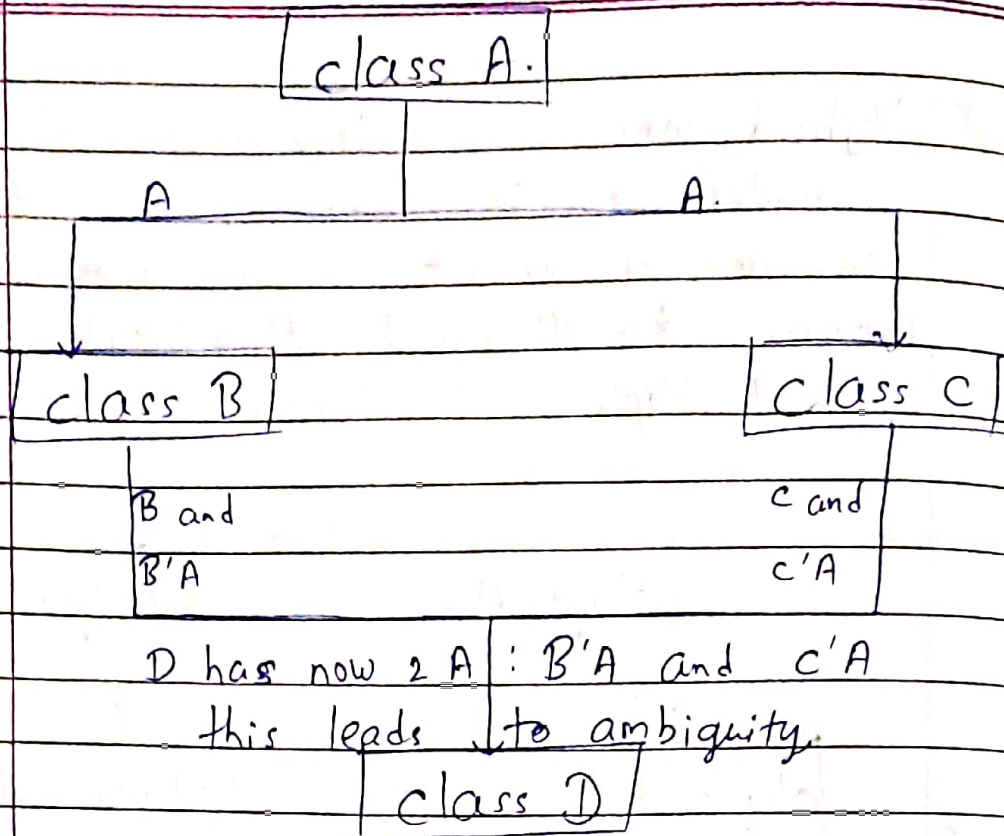 class A.
A A.
class B class C
B and c and
B'A c'A
D has now 2 A : B'A and c'A
this leads to ambiguity.
class D